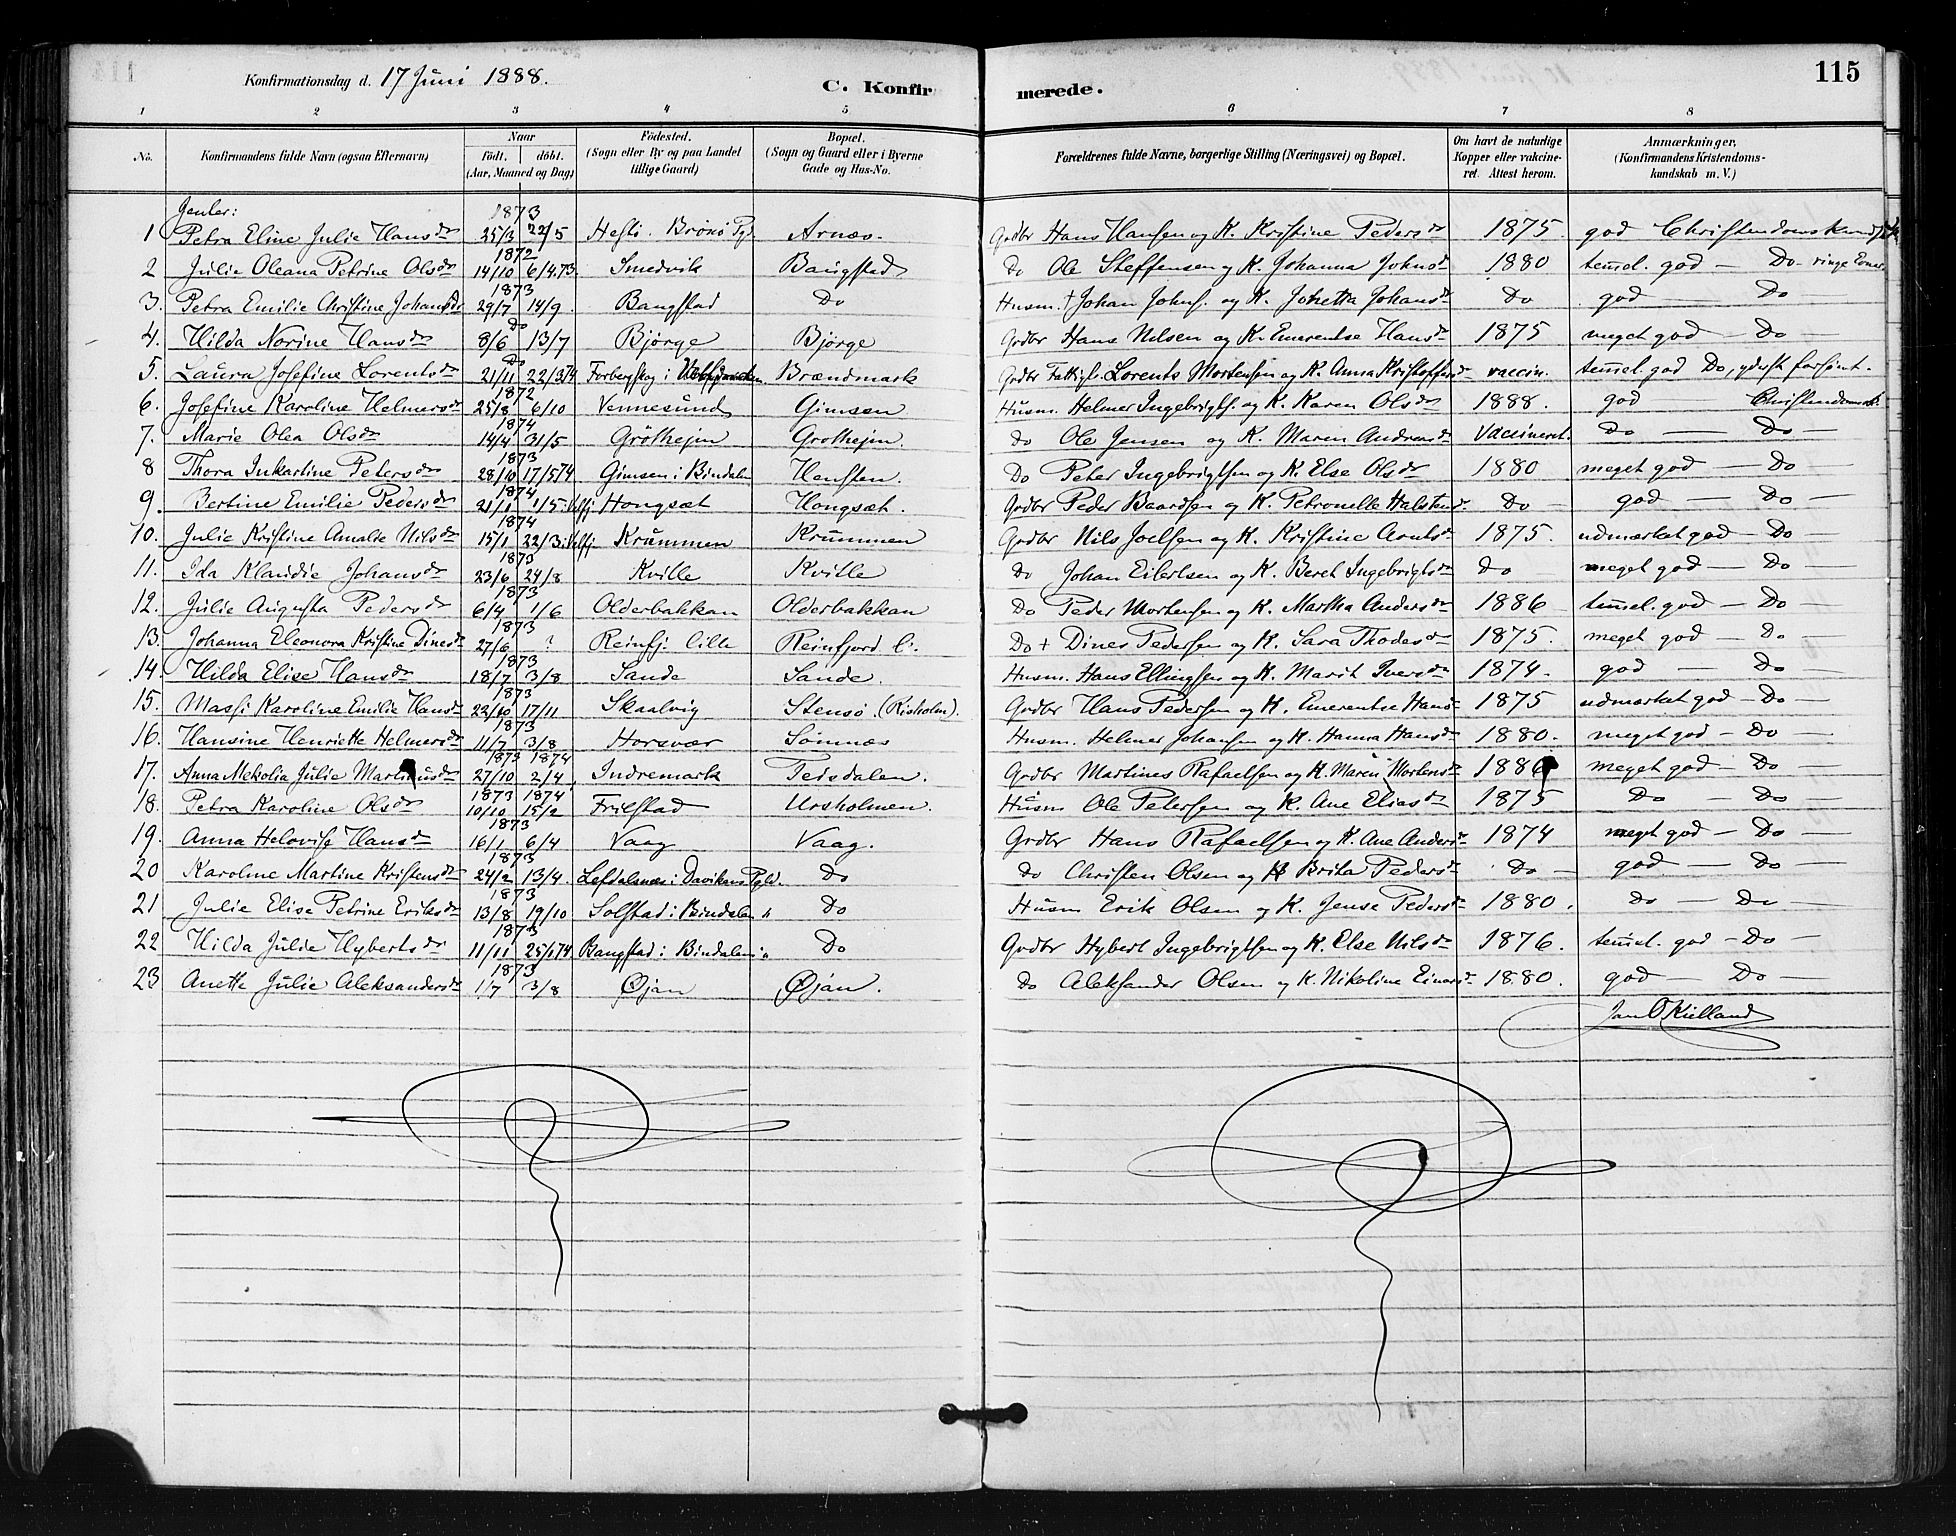 Konfirmationsdag d. 17 Juni 1888. C. Konfirmerede. 115
1 2 3 4 5 6 7 8
No. Konfirmandens fulde Navn (ogsaa Efternavn) Naar Født. døbt. (Aar, Maaned og Dag) Fødested. (Sogn eller By og paa Landet tillige Gaard) Bopæl. (Sogn og Gaard eller i Byerne Gade og Hus-No. Forældrenes fulde Navne, borgerlige Stilling (Næringsvei) og Bopæl. Om havt de naturlige Kopper eller vakcineret. Attest herom. Anmærkninger, (Konfirmandens Kristendomskundskab m. V.)
Jenter: 1873
1 Petra Eline Julie Hansdr 25/3 22/5 Hefti. Brønø Pgl. Arnæs. Grdbr Hans Hansen og K. Kristine Pedersdr 1875. god Christendomskundsk
1872
2 Julie Oleana Petrine Olsdr 14/10 6/4.73. Smedvik Bangstad Do Ole Steffensen og K. Johanna Johnsdr 1880 temmel. god — Do - ringe Evner
1873
3. Petra Emilie Christine Johansdr 29/7 14/9. Bangstad Do Husm. † Johan Johns. og K. Johetta Johansdr Do god — Do
Do
4. Hilda Norine Hansdr 8/6 13/7 Bjørge Bjørge Grdbr Hans Nilsen og K. Emerentse Hansdr 1875 meget god — Do —
Do
5. Laura Josefine Lorentsdr 21/11 22/3 74 Forbergskog i Brændmark Grdbr Fattigf. Lorents Mortensen og K. Anna Kristoffersdr vaccin. temmel. god Do, yderst forsømt.
1872
6. Josefine Karoline Helmersdr 25/8 6/10 Vennesund Gimsen Husm. Helmer Ingebrigts. og K. Karen Olsdr 1888. god Christendomsk.
1874
7. Marie Olea Olsdr 14/4 31/5 Grøthejm Grothejm. Do Ole Jensen og K. Maren Andreasdr Vaccineret. Do — Do —
1873
8 Thora Inkartine Petersdr 28/10 17/5 74 Gimsen i Bindalen Hensten. Do Peter Ingebrigtsen og K. Else Olsdr 1880 meget god — Do —
1874
9. Bertine Emilie Pedersdr 21/1 1/5 Hongsæt Hongsæt. Grdbr Peder Baardsen og K. Petronelle Halstensd. Do — god — Do —
1874
10. Julie Kristine Amalde Nilsdr 15/1 22/3 Krummen Krummen Grdbr Nils Joelsen og K. Kristine Arntsdr 1875. udmærket god — Do —
1873
11. Ida Klaudie Johansdr 23/6 24/8 Kville Kville Do Johan Eilertsen og K. Beret Ingebrigtsdr Do meget god — Do —
1873
12. Julie Augusta Pedersdr 6/4 1/6 Olderbakkan Olderbakkan Do Peder Mortensen og K. Martha Andersdr 1886 temmel. god — Do —
1873
13. Johanna Eleonora Kristine Dinesdr 27/6 — ? Reinfj. lille Reinfjord l. Do † Dines Pedersen og K. Sara Thodesdr 1875. meget god — Do
1873
14. Hilda Elise Hansdr 18/7 3/8 Sande Sande. Husm. Hans Ellingsen og K. Marit Iversdr 1874. god — Do —
1873
15. Massi Karoline Emilie Hansdr 22/10 17/11 Skaalvig Stensø (Risholm). Grdbr Hans Pedersen og K. Emerentse Hansdr 1875 udmærket god — Do —
1873
16. Hansine Henriette Helmersdr 11/7 3/8 Horsvær Sømnæs Husm. Helmer Johansen og K. Hanna Hansdr 1880. meget god — Do —
1873 1874
17. Anna Mekolia Julie Martinusdr 27/10 2/4 Indremark Teisdalen. Grdbr Martines Rafaelsen og K. Maren Mortensdr 1886 meget god — Do —
1873 1874
18. Petra Karoline Olsdr 10/10 15/2 Frilstad Ursholmen. Husm Ole Petersen og K. Ane Eliasdr 1875 Do — Do —
1873
19. Anna Helovise Hansdr 16/1 6/4 Vaag Vaag. Grdbr Hans Rafaelsen og K. Ane Andersdr 1874 meget god — Do —
1873
20 Karoline Martine Kristensdr 24/2 13/4 Lefdalsnæs i Davikens Pgld. Do Do Christen Olsen og K Brita Pedersdr Do — god — Do —
1873
21 Julie Elise Petrine Eriksdr 13/8 19/10 Solstad i Bindalen " Do Husm Erik Olsen og K. Jense Pedersdr 1880. Do — Do —
1873
22 Hilda Julie Hybertsdr 11/11 25/1 74 Bangstad i Bindalen " Do Grdbr Hybert Ingebrigtsen og K. Else Nilsdr 1876. temmel. god — Do —
1873
23 Anette Julie Aleksandersdr 1/7 3/8 Øjan Øjan. Do Aleksander Olsen og K. Nikoline Einarsdr 1880. god — Do —
Jan O Kielland